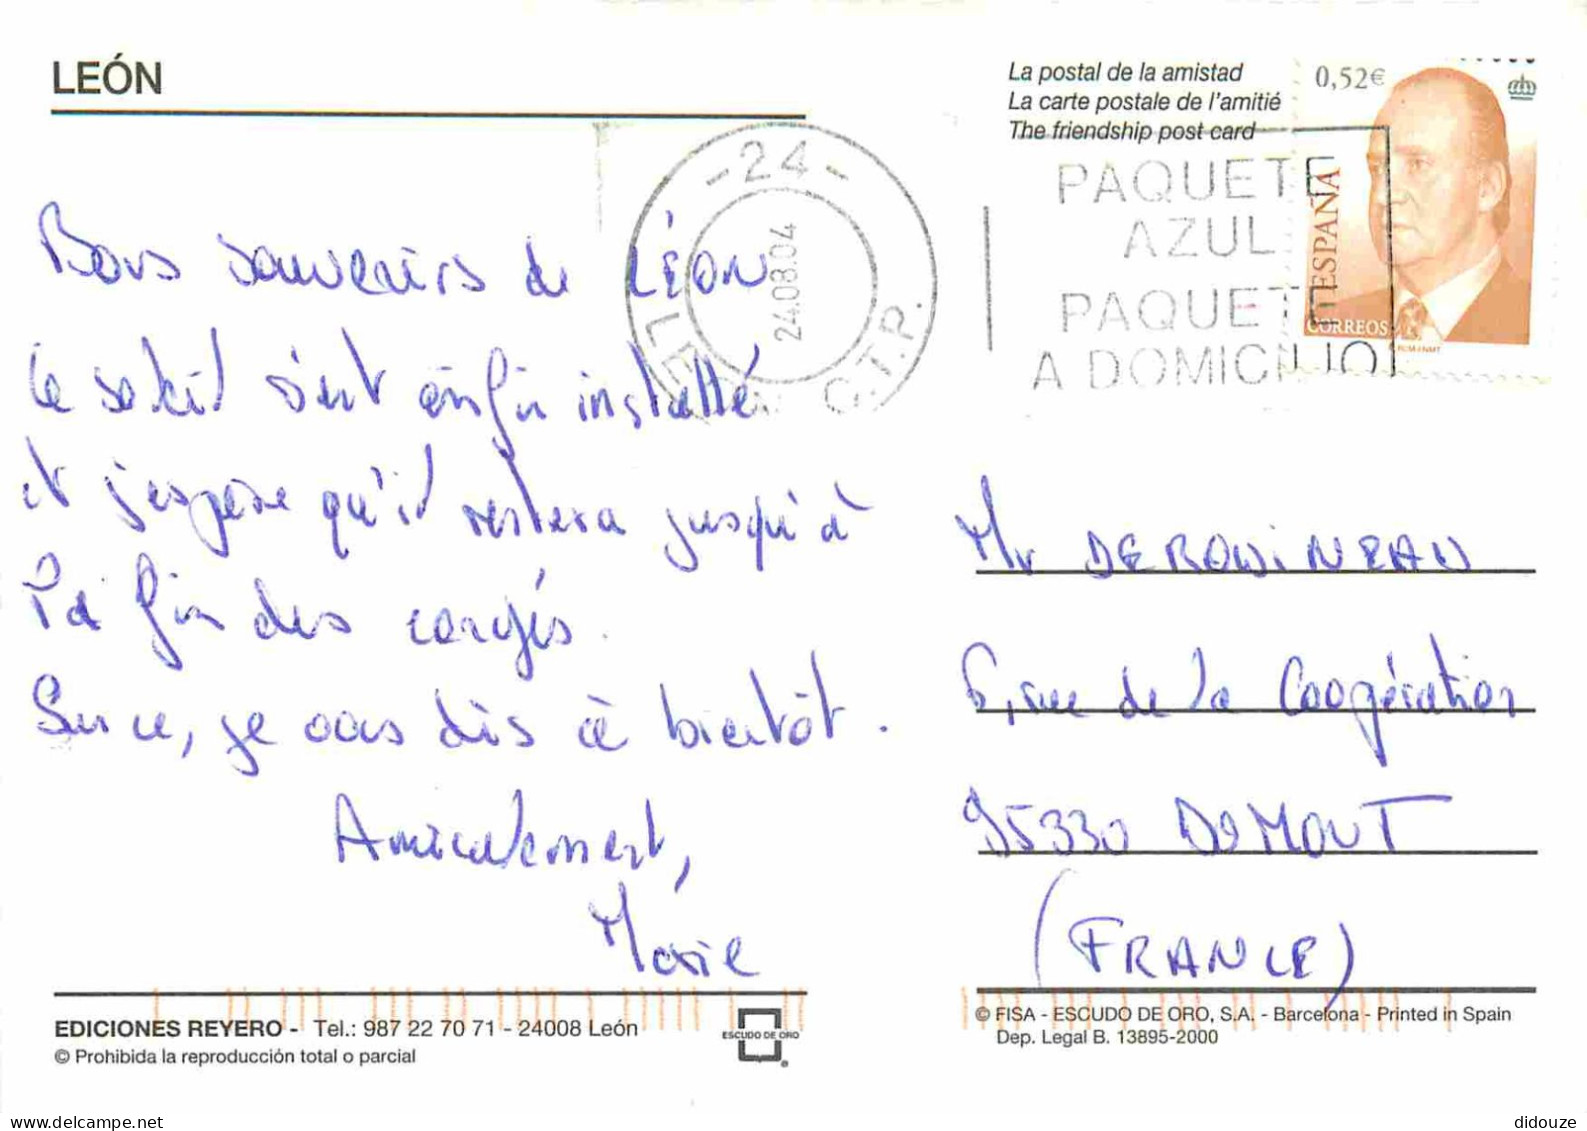 LEÓN
La postal de la amistad
La carte postale de l'amitié
The friendship post card
0,52€
ESPAÑA
CORREOS
-24-
24.08.04
LEÓN
C.T.P.
PAQUETE
AZUL
PAQUETE
A DOMICILIO
Bons souvenirs de LÉON
Le soleil s'est enfin installé
et j'espère qu'il restera jusqu'à
la fin des congés.
Sur ce, je vous dis à bientôt.
Amicalement,
Marie
Mr DEROUINEAU
6, rue de la Coopération
95330 DOMONT
(FRANCE)
EDICIONES REYERO - Tel.: 987 22 70 71 - 24008 León
© Prohibida la reproducción total o parcial
ESCUDO DE ORO
®
© FISA - ESCUDO DE ORO, S.A. - Barcelona - Printed in Spain
Dep. Legal B. 13895-2000
didouze